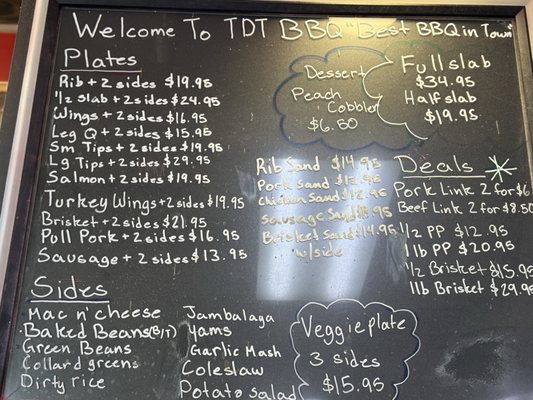 Welcome To TDT BBQ "Best BBQ in Town"
Plates
Rib + 2 sides $19.95
1/2 slab + 2 sides $24.95
Wings + 2 sides $16.95
Leg Q + 2 sides $15.95
Sm Tips + 2 sides $19.95
Lg Tips + 2 sides $29.95
Salmon + 2 sides $19.95
Turkey Wings + 2 sides $19.95
Brisket + 2 sides $21.95
Pull Pork + 2 sides $16.95
Sausage + 2 sides $13.95
Sides
Mac n' cheese
Baked Beans (B/T)
Green Beans
Collard greens
Dirty rice
Jambalaga
Yams
Garlic Mash
Coleslaw
Potato salad
Dessert
Peach
Cobbler
$6.50
Full slab
$34.95
Half slab
$19.95
Rib Sand $14.95
Pork Sand
Chicken Sand
Sausage Sand
Brisket Sand $14.95
w/side
Deals
Pork Link 2 for $6
Beef Link 2 for $8.50
1/2 PP $12.95
1lb PP $20.95
1/2 Brisket $15.95
1lb Brisket $29.95
Veggie plate
3 sides
$15.95